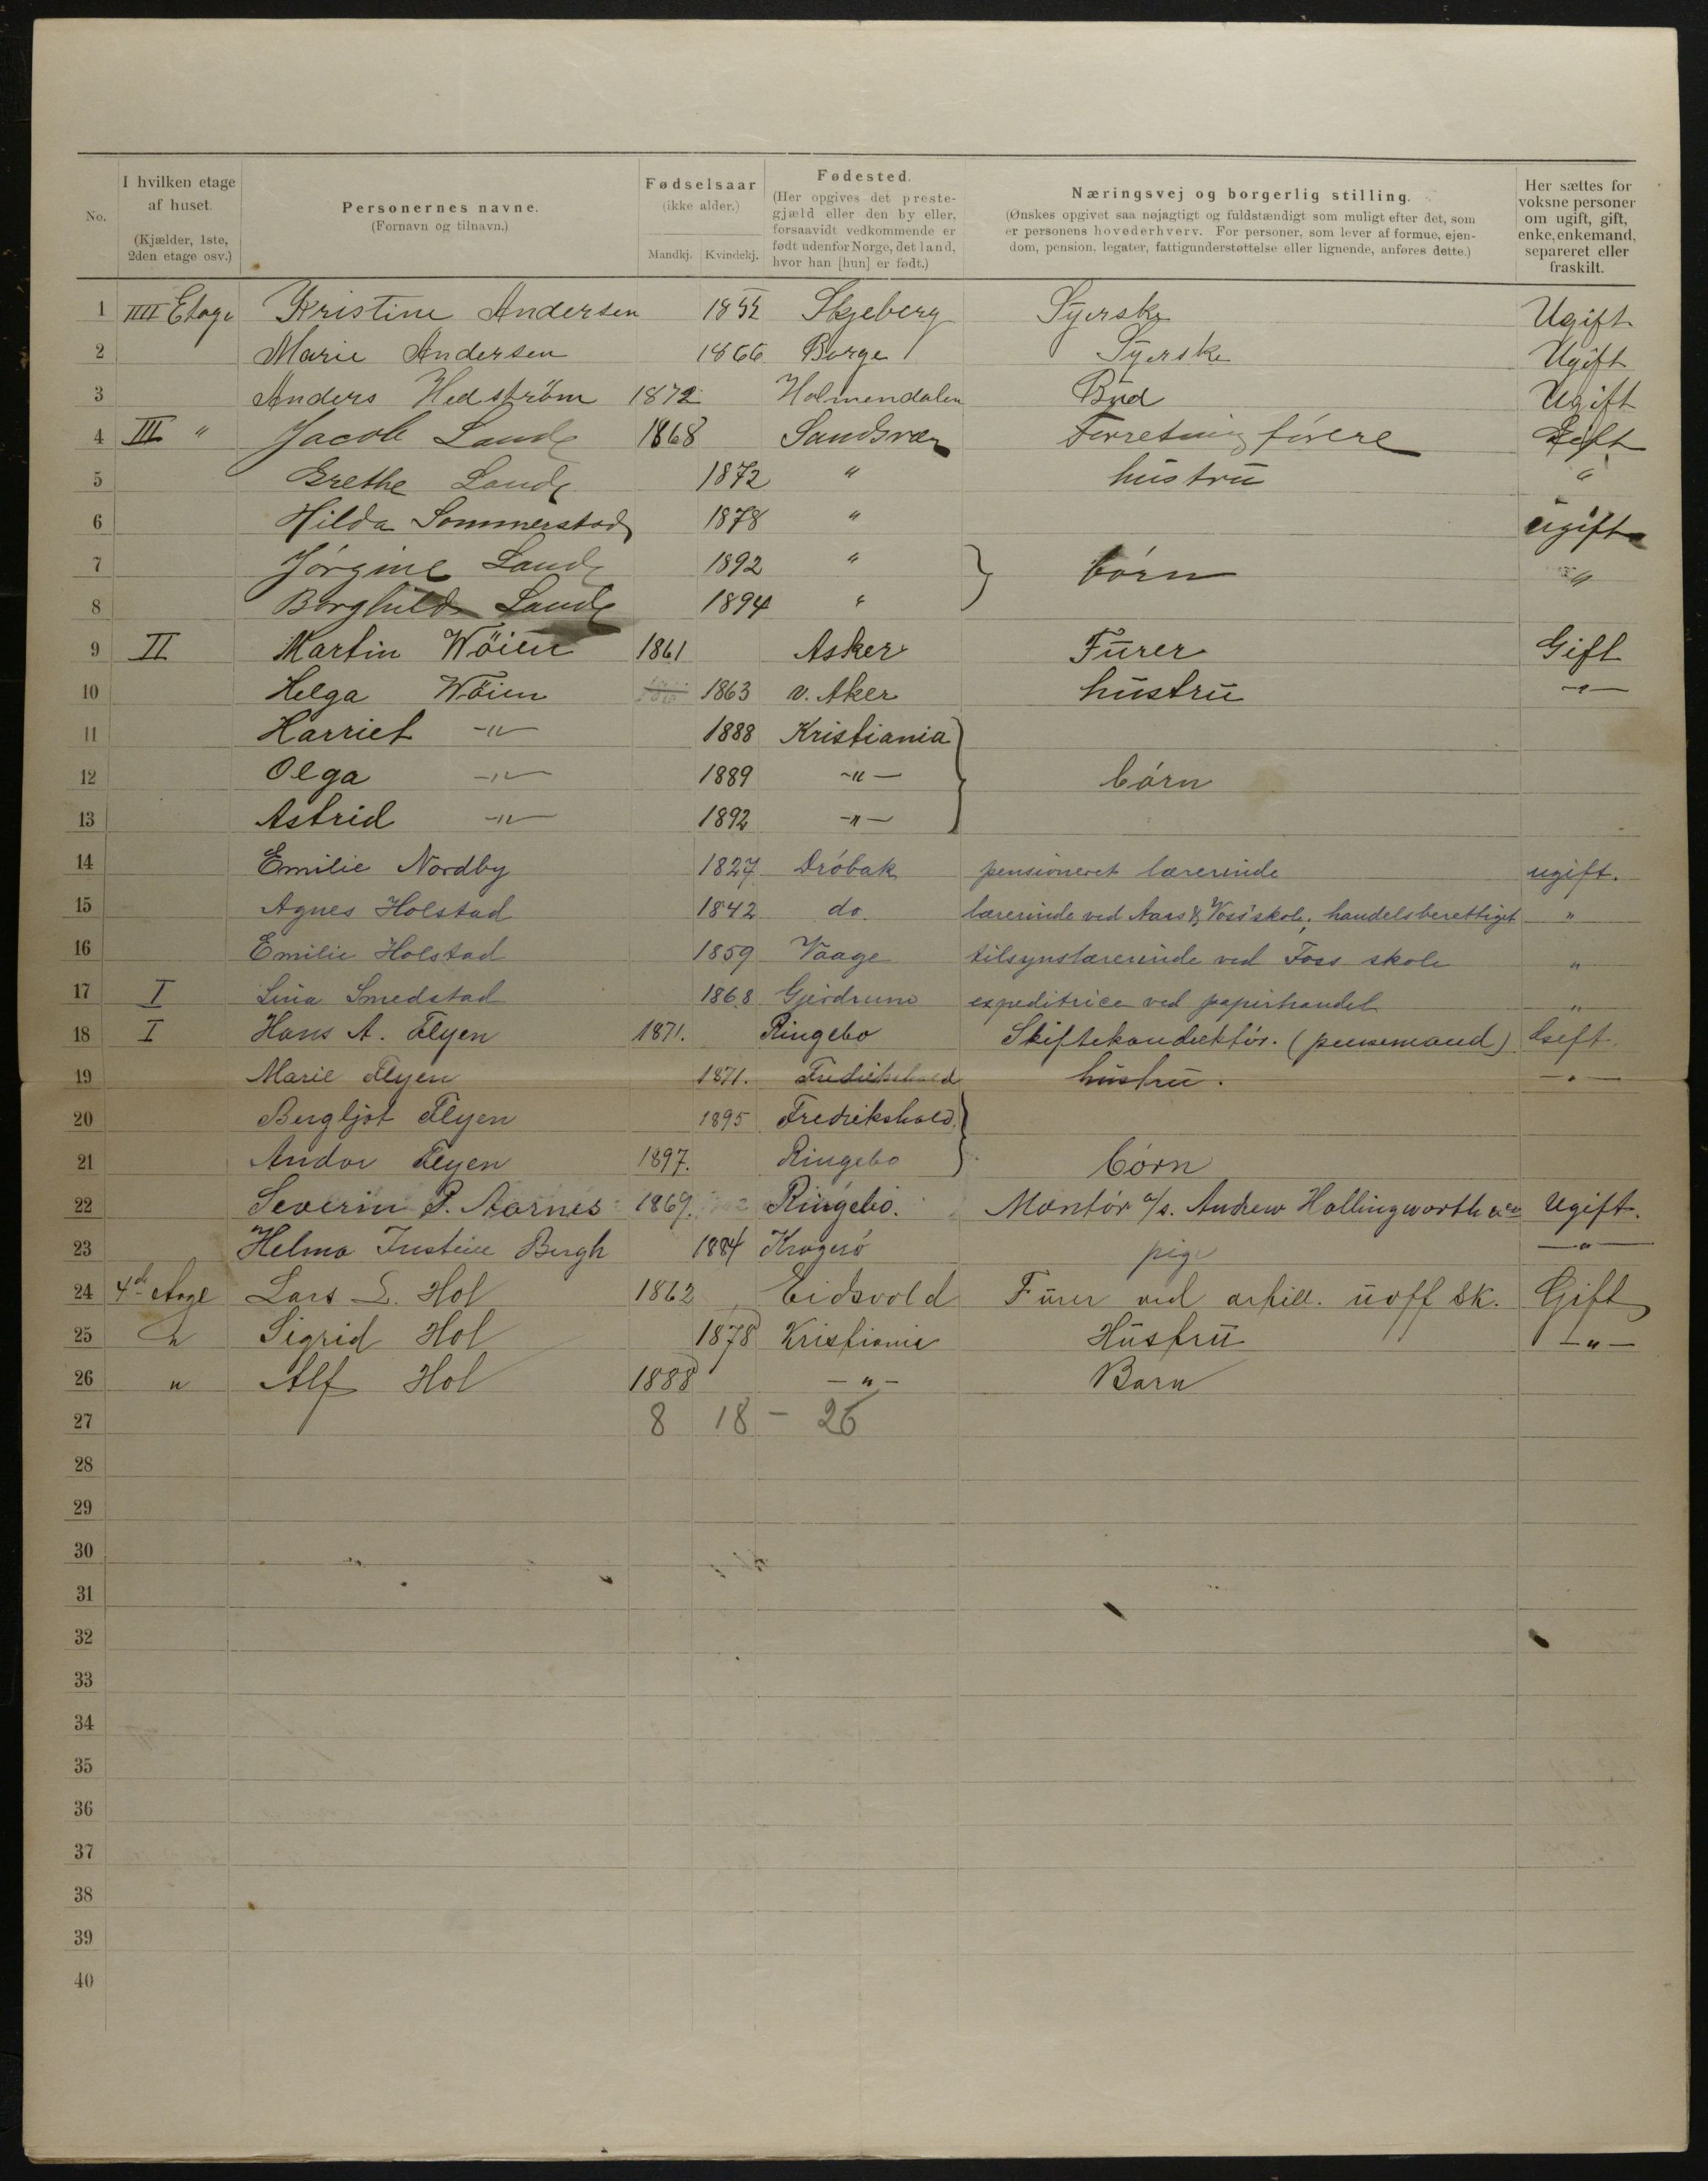 No.
I hvilken etage af huset.
(Kjælder, 1ste, 2den etage osv.)
Personernes navne.
(Fornavn og tilnavn.)
Fødselsaar
(ikke alder.)
Mandkj. Kvindekj.
Fødested.
(Her opgives det prestegjæld eller den by eller, forsaavidt vedkommende er født udenfor Norge, det land, hvor han [hun] er født.)
Næringsvej og borgerlig stilling.
(Ønskes opgivet saa nøjagtigt og fuldstændigt som muligt efter det, som er personens hovederhverv. For personer, som lever af formue, ejendom, pension, legater, fattigunderstøttelse eller lignende, anføres dette.)
Her sættes for voksne personer om ugift, gift, enke, enkemand, separeret eller fraskilt.
1 IIII Etage Kristine Andersen 1852 Skjeberg Syerske Ugift
2 Marie Andersen 1866 Borge Syerske Ugift
3 Anders Hedström 1872 Holmendalen Bud Ugift
4 III " Jacob Lande 1868 Sandsvær Forretningsførere Gift
5 Grethe Lande 1872 " hustru "
6 Hilda Sommerstad 1878 " ugift
7 Jørgine Lande 1892 " } børn "
8 Borghild Lande 1894 "
9 II Martin Wøien 1861 Asker Furer Gift
10 Helga Wøien 1863 v. Aker hustru -"-
11 Harriet -"- 1888 Kristiania }
12 Olga -"- 1889 -"- børn
13 Astrid -"- 1892 -"-
14 Emilie Nordby 1827 Drøbak pensioneret lærerinde ugift.
15 Agnes Holstad 1842 do. lærerinde ved Aars & Voss' skole, handelsberettiget "
16 Emilie Holstad 1859 Vaage tilsynslærerinde ved Foss skole "
17 I Lina Smedstad 1868 Gjerdrum expeditrice ved papirhandel "
18 I Hans A. Flyen 1871. Ringebo Skiftekonduktør. (pensemand) Gift.
19 Marie Flyen 1871. Fredrikshald hustru. -"-
20 Bergljot Flyen 1895 Fredrikshald }
21 Andor Flyen 1897. Ringebo børn
22 Severin P. Aarnes 1869. Ringebo. Montør a/s. Andrew Hollingworth Ugift.
23 Helma Justine Bergh 1884 Kragerø pige -"-
24 4de Etage Lars L. Hol 1862 Eidsvold Furer ved artill. uoff sk. Gift
25 " Sigrid Hol 1878 Kristiania Hustru -"-
26 " Alf Hol 1888 -"- Barn
27 8 18 - 26
28
29
30
31
32
33
34
35
36
37
38
39
40